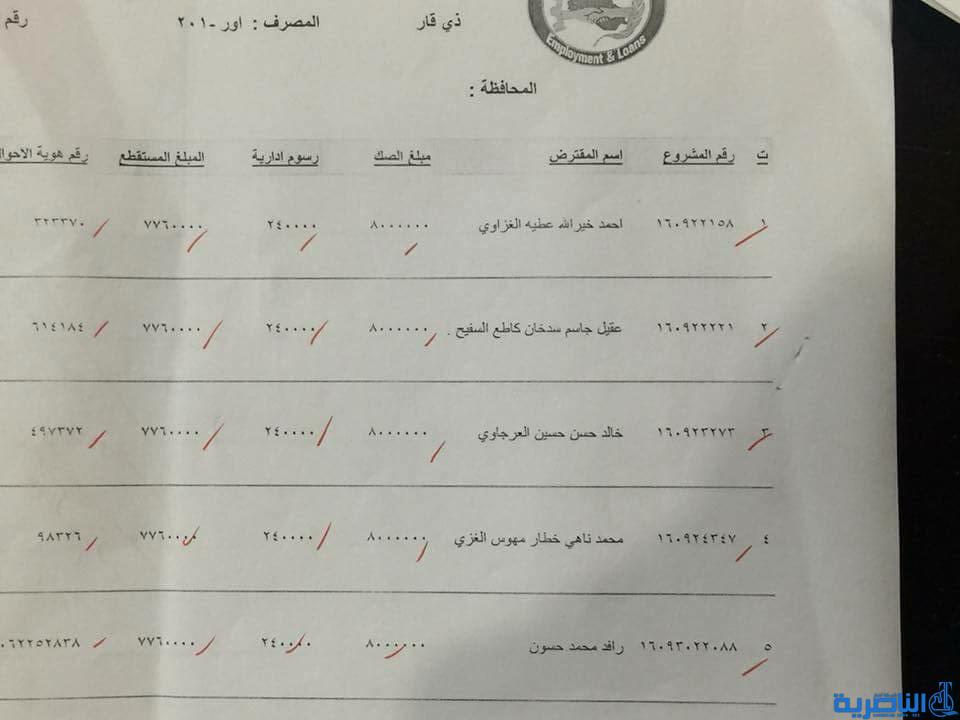 ذي قار المصرف : اور -٢٠١ رقم
Employment & Loans
المحافظة :
ت رقم المشروع اسم المقترض مبلغ الصك رسوم ادارية المبلغ المستقطع رقم هوية الاحوا
١ ١٦٠٩٢٢١٥٨ احمد خيرالله عطيه الغزاوي ٨٠٠٠٠٠٠ ٢٤٠٠٠٠ ٧٧٦٠٠٠٠ ٣٢٣٣٧٠
٢ ١٦٠٩٢٢٢٢١ عقيل جاسم سدخان كاطع السفيح . ٨٠٠٠٠٠٠ ٢٤٠٠٠٠ ٧٧٦٠٠٠٠ ٦١٤١٨٤
٣ ١٦٠٩٢٣٢٧٣ خالد حسن حسين العرجاوي ٨٠٠٠٠٠٠ ٢٤٠٠٠٠ ٧٧٦٠٠٠٠ ٤٩٧٣٧٢
٤ ١٦٠٩٢٤٣٤٧ محمد ناهي خطار مهوس الغزي ٨٠٠٠٠٠٠ ٢٤٠٠٠٠ ٧٧٦٠٠٠٠ ٩٨٣٢٦
٥ ١٦٠٩٣٠٢٢٠٨٨ رافد محمد حسون ٨٠٠٠٠٠٠ ٢٤٠٠٠٠ ٧٧٦٠٠٠٠ ٠٦٢٢٥٢٨٣٨
الناصرية